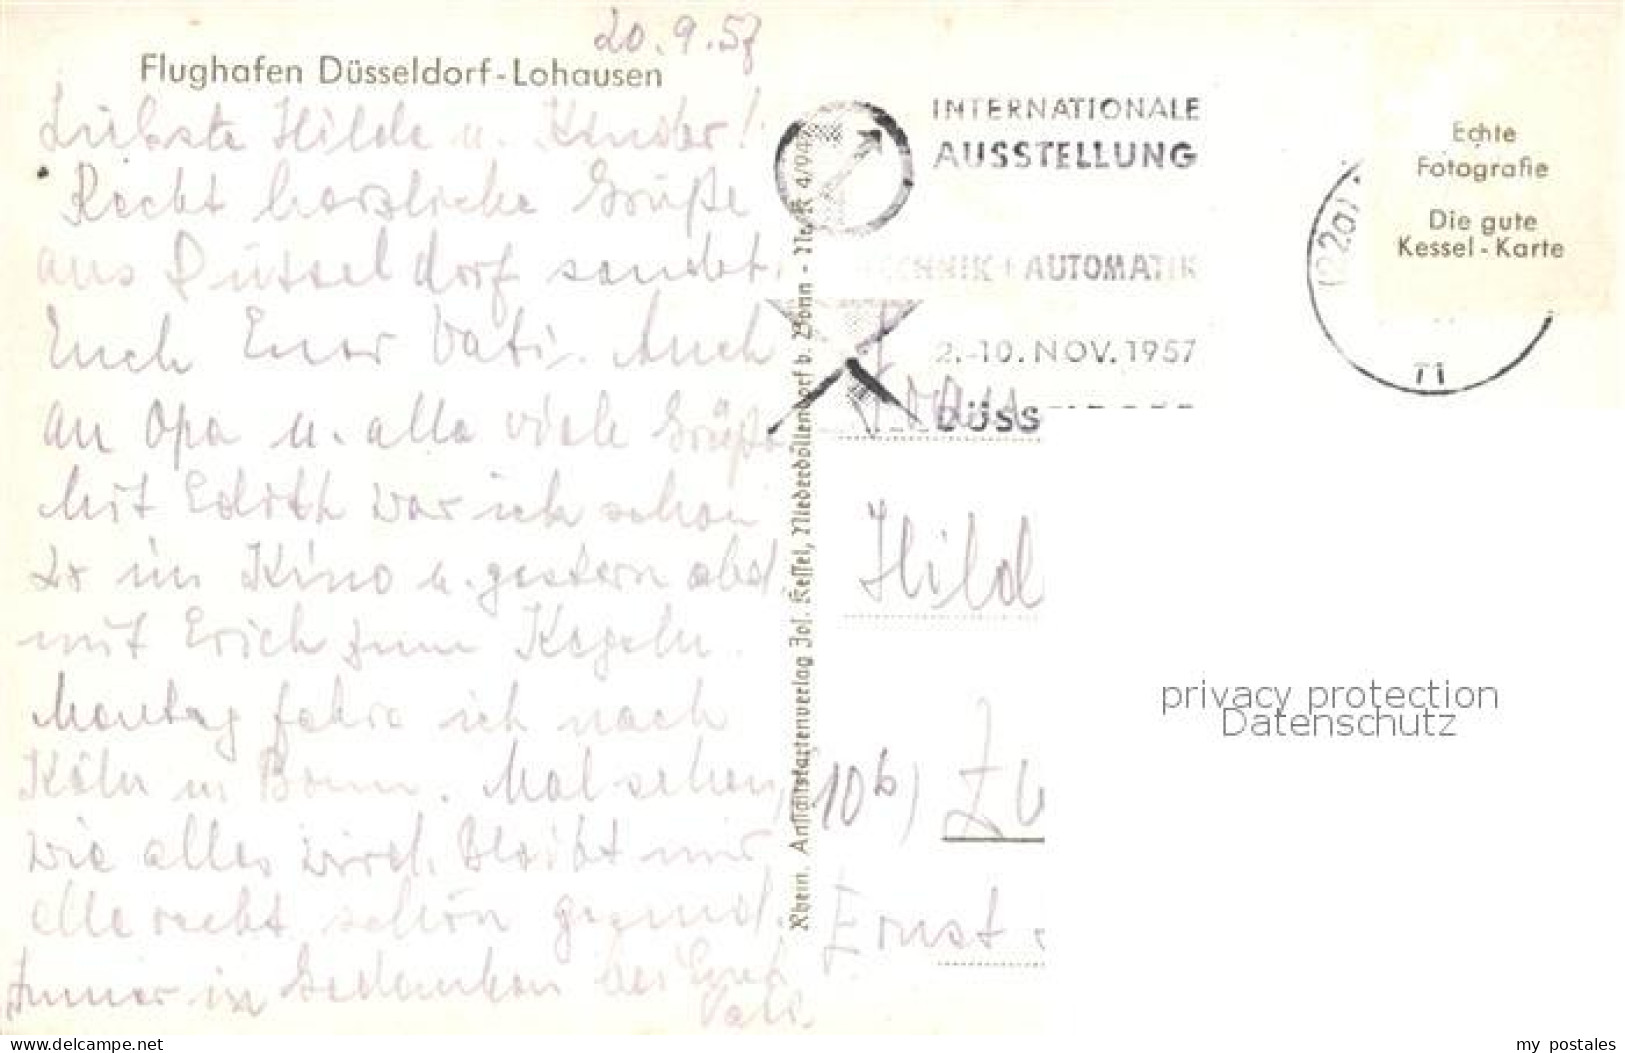 20.9.57
Flughafen Düsseldorf-Lohausen
Liebste Hilde u. Kinder!
Recht herzliche Grüße
aus Düsseldorf sendet
Euch Euer Vati. Auch
an Opa u. alle viele Grüße
Mit Edith war ich schon
2x im Kino u. gestern abd
mit Erich zum Kegeln.
Montag fahre ich nach
Köln u. Bonn. Mal sehen,
wie alles wird. Bleibt mir
alle recht schön gesund.
Immer in Gedanken bei Euch
Vati.
Rhein. Ansichtskartenverlag Jos. Kessel, Niederdollendorf b. Bonn - Nr. K 4/94
INTERNATIONALE
AUSSTELLUNG
TECHNIK + AUTOMATIK
2.-10. NOV. 1957
DÜSS
(22a)
Echte
Fotografie
Die gute
Kessel-Karte
Frau
Hild
10b) Zw
Ernst
privacy protection
Datenschutz
www.delcampe.net
my_postales